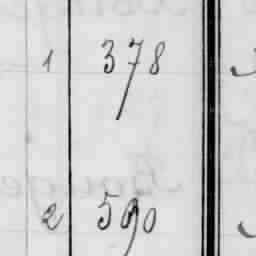 1 378
2 590